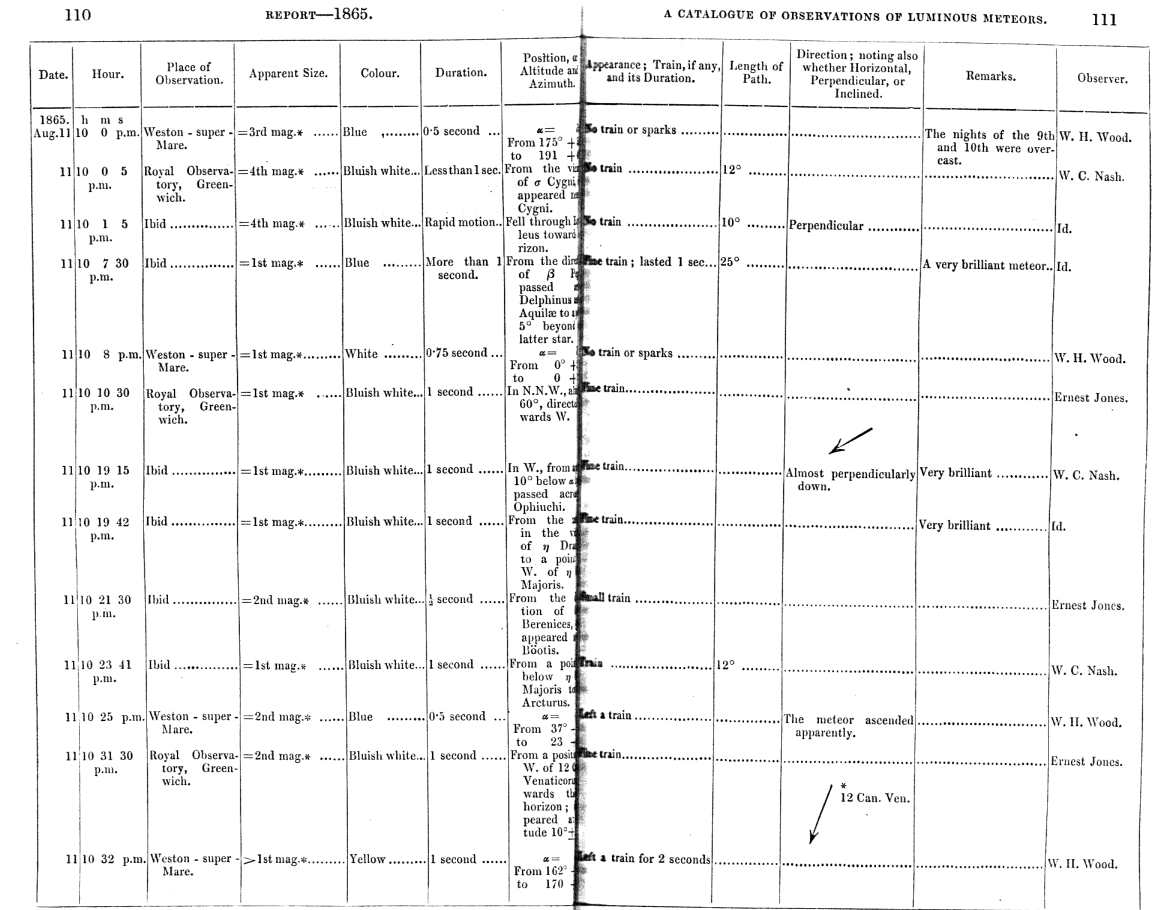 110 REPORT—1865.
A CATALOGUE OF OBSERVATIONS OF LUMINOUS METEORS. 111
Date. Hour. Place of Observation. Apparent Size. Colour. Duration. Position, Altitude Azimuth. Appearance; Train, if any, and its Duration. Length of Path. Direction; noting also whether Horizontal, Perpendicular, or Inclined. Remarks. Observer.
1865. h m s
Aug.11 10 0 p.m. Weston - super - =3rd mag.* ...... Blue ,....... 0·5 second ... α= No train or sparks The nights of the 9th W. H. Wood.
Mare. From 175° + and 10th were over-
to 191 + cast.
11 10 0 5 Royal Observa- =4th mag.* ...... Bluish white... Less than 1 sec. From the No train 12° W. C. Nash.
p.m. tory, Green- of σ Cygni
wich. appeared
Cygni.
11 10 1 5 Ibid =4th mag.* Bluish white... Rapid motion.. Fell through No train 10° Perpendicular Id.
p.m. leus toward
rizon.
11 10 7 30 Ibid =1st mag.* Blue More than 1 From the Fine train ; lasted 1 sec... 25° A very brilliant meteor.. Id.
p.m. second. of β
passed
Delphinus
Aquilæ to
5° beyond
latter star.
11 10 8 p.m. Weston - super - =1st mag.* White 0·75 second ... α= No train or sparks W. H. Wood.
Mare. From 0° +
to 0 +
11 10 10 30 Royal Observa- =1st mag.* Bluish white... 1 second In N.N.W., Fine train Ernest Jones.
p.m. tory, Green- 60°, direct
wich. wards W.
11 10 19 15 Ibid =1st mag.* Bluish white... 1 second In W., from Fine train Almost perpendicularly Very brilliant W. C. Nash.
p.m. 10° below down.
passed
Ophiuchi.
11 10 19 42 Ibid =1st mag.* Bluish white... 1 second From the Fine train Very brilliant Id.
p.m. in the
of η Dra
to a poin
W. of η
Majoris.
11 10 21 30 Ibid =2nd mag.* Bluish white... ½ second From the Small train Ernest Jones.
p.m. tion of
Berenices,
appeared
Böotis.
11 10 23 41 Ibid =1st mag.* Bluish white... 1 second From a poi Train 12° W. C. Nash.
p.m. below η
Majoris
Arcturus.
11 10 25 p.m. Weston - super - =2nd mag.* Blue 0·5 second α= Left a train The meteor ascended W. H. Wood.
Mare. From 37° apparently.
to 23
11 10 31 30 Royal Observa- =2nd mag.* Bluish white... 1 second From a posit Fine train Ernest Jones.
p.m. tory, Green- W. of 12
wich. Venaticor
wards *
horizon ; 12 Can. Ven.
peared
tude 10°
11 10 32 p.m. Weston - super - >1st mag.* Yellow 1 second α= Left a train for 2 seconds W. H. Wood.
Mare. From 162°
to 170